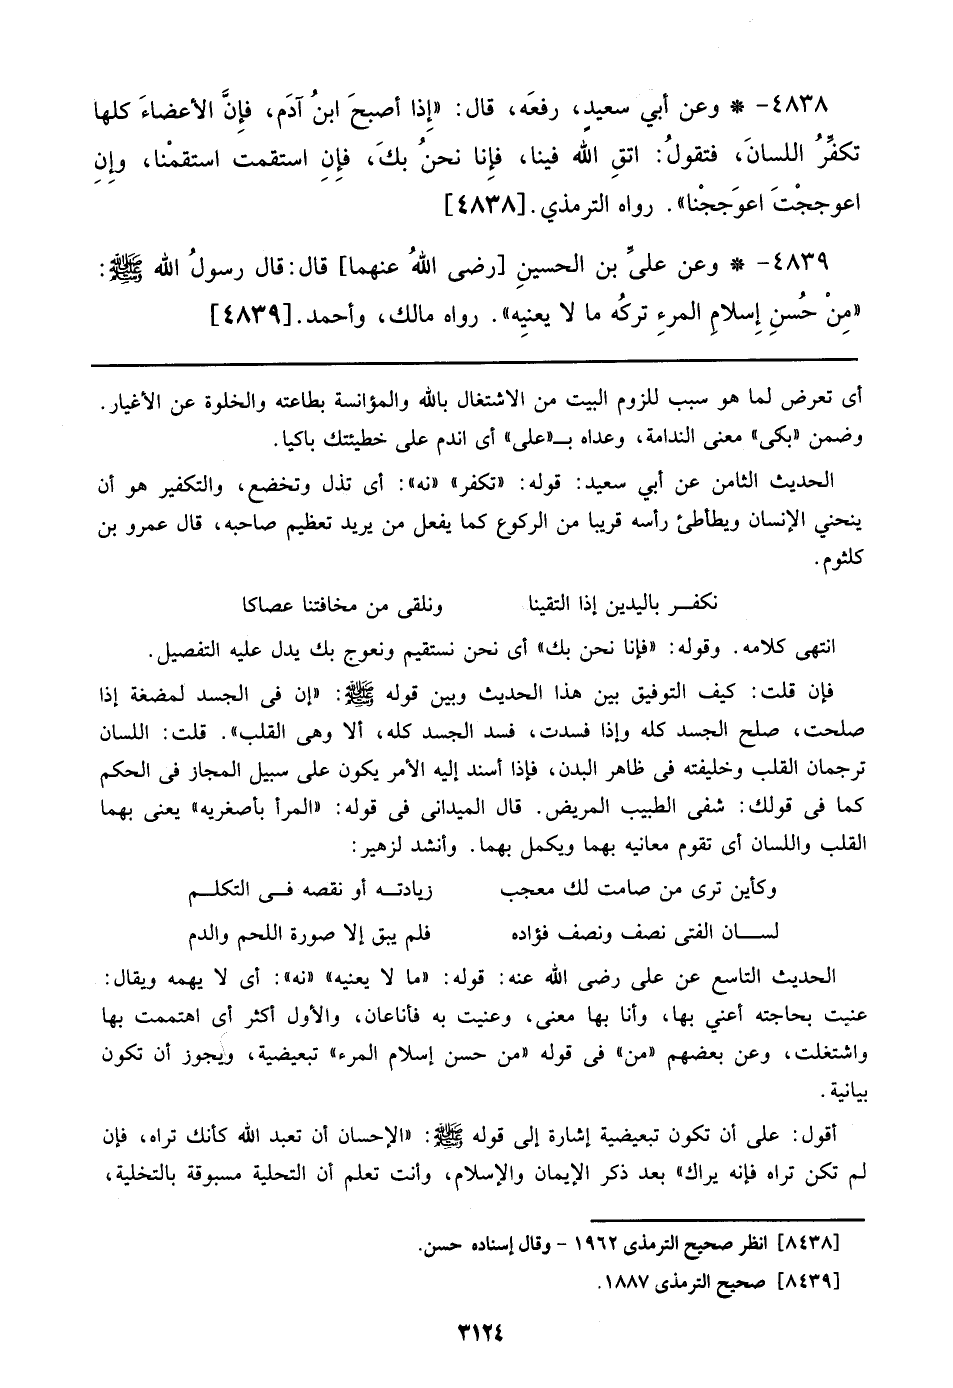 ٤٨٣٨- * وعن أبي سعيدٍ، رفعَه، قال: «إِذا أصبحَ ابنُ آدَم، فإِنَّ الأعضاءَ كلها
تكفِّرُ اللسانَ، فتقولُ: اتقِ الله فينا، فإِنا نحنُ بكَ، فإِنِ استقمت استقمْنا، وإِنِ
اعوججْتَ اعوَججْنا». رواه الترمذي.[٤٨٣٨]
٤٨٣٩- * وعن علىِّ بن الحسينِ [رضى اللهُ عنهما] قال: قال رسولُ الله ﷺ:
«مِنْ حُسنِ إِسلامِ المرءِ تركُه ما لا يعنِيه». رواه مالك، وأحمد.[٤٨٣٩]
أى تعرض لما هو سبب للزوم البيت من الاشتغال بالله والمؤانسة بطاعته والخلوة عن الأغيار.
وضمن «بكى» معنى الندامة، وعداه بـ«على» أى اندم على خطيئتك باكيا.
الحديث الثامن عن أبي سعيد: قوله: «تكفر» «نه»: أى تذل وتخضع، والتكفير هو أن
ينحني الإنسان ويطأطئ رأسه قريبا من الركوع كما يفعل من يريد تعظيم صاحبه، قال عمرو بن
كلثوم.
نكفــر باليدين إذا التقينا ونلقى من مخافتنا عصاكا
انتهى كلامه. وقوله: «فإنا نحن بك» أى نحن نستقيم ونعوج بك يدل عليه التفصيل.
فإن قلت: كيف التوفيق بين هذا الحديث وبين قوله ﷺ: «إن فى الجسد لمضغة إذا
صلحت، صلح الجسد كله وإذا فسدت، فسد الجسد كله، ألا وهى القلب». قلت: اللسان
ترجمان القلب وخليفته فى ظاهر البدن، فإذا أسند إليه الأمر يكون على سبيل المجاز فى الحكم
كما فى قولك: شفى الطبيب المريض. قال الميدانى فى قوله: «المرأ بأصغريه» يعنى بهما
القلب واللسان أى تقوم معانيه بهما ويكمل بهما. وأنشد لزهير:
وكأين ترى من صامت لك معجب زيادتــه أو نقصه فــى التكلــم
لســـان الفتى نصف ونصف فؤاده فلم يبق إلا صورة اللحم والدم
الحديث التاسع عن على رضى الله عنه: قوله: «ما لا يعنيه» «نه»: أى لا يهمه ويقال:
عنيت بحاجته أعني بها، وأنا بها معنى، وعنيت به فأناعان، والأول أكثر أى اهتممت بها
واشتغلت، وعن بعضهم «من» فى قوله «من حسن إسلام المرء» تبعيضية، ويجوز أن تكون
بيانية.
أقول: على أن تكون تبعيضية إشارة إلى قوله ﷺ: «الإحسان أن تعبد الله كأنك تراه، فإن
لم تكن تراه فإنه يراك» بعد ذكر الإيمان والإسلام، وأنت تعلم أن التحلية مسبوقة بالتخلية،
[٨٤٣٨] انظر صحيح الترمذى ١٩٦٢ - وقال إسناده حسن.
[٨٤٣٩] صحيح الترمذى ١٨٨٧.
٣١٢٤